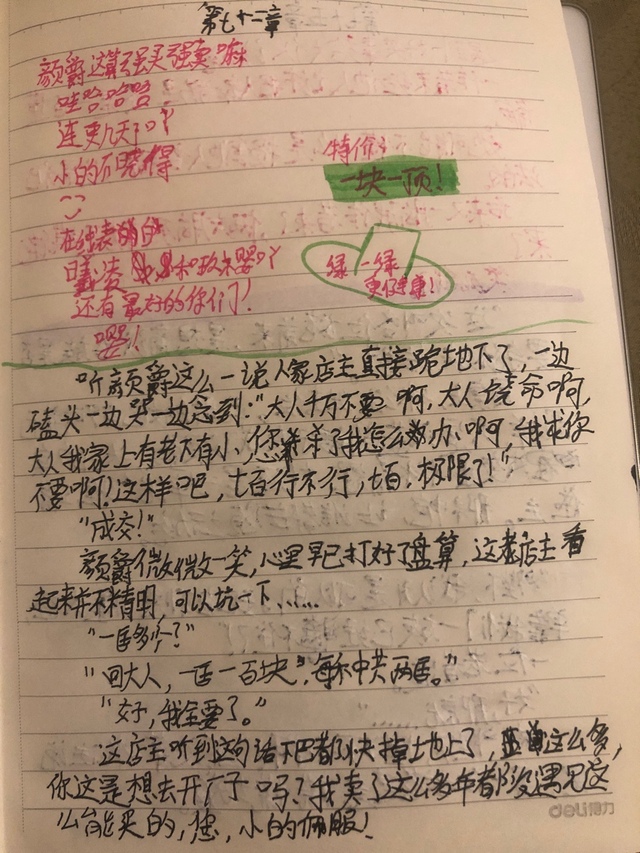 第七十二章
颜爵这算强买强卖嘛
哇哈哈哈
连更几天了吖
小的不晓得
在线表明白
曦凌
还有最好的你们！
嘤！
特价
一块一顶！
绿一绿
更健康！
听颜爵这么一说人家店主直接跪地下了，一边
磕头一边哭一边念到：“大人千万不要啊，大人饶命啊，
大人我家上有老下有小，您杀了我怎么办啊，我求你
不要啊！这样吧，七百行不行，七百，极限了！”
“成交！”
颜爵微微一笑，心里早已打好了盘算，这老店主看
起来并不精明，可以坑一下……
“一匹多少？”
“回大人，一匹一百块，每种共两匹。”
“好，我全要了。”
这店主听到这句话下巴都快掉土地上了，买这么多，
你这是想去开厂子吗？我卖了这么多年都没遇见这
么能买的，您，小的佩服！
deli得力